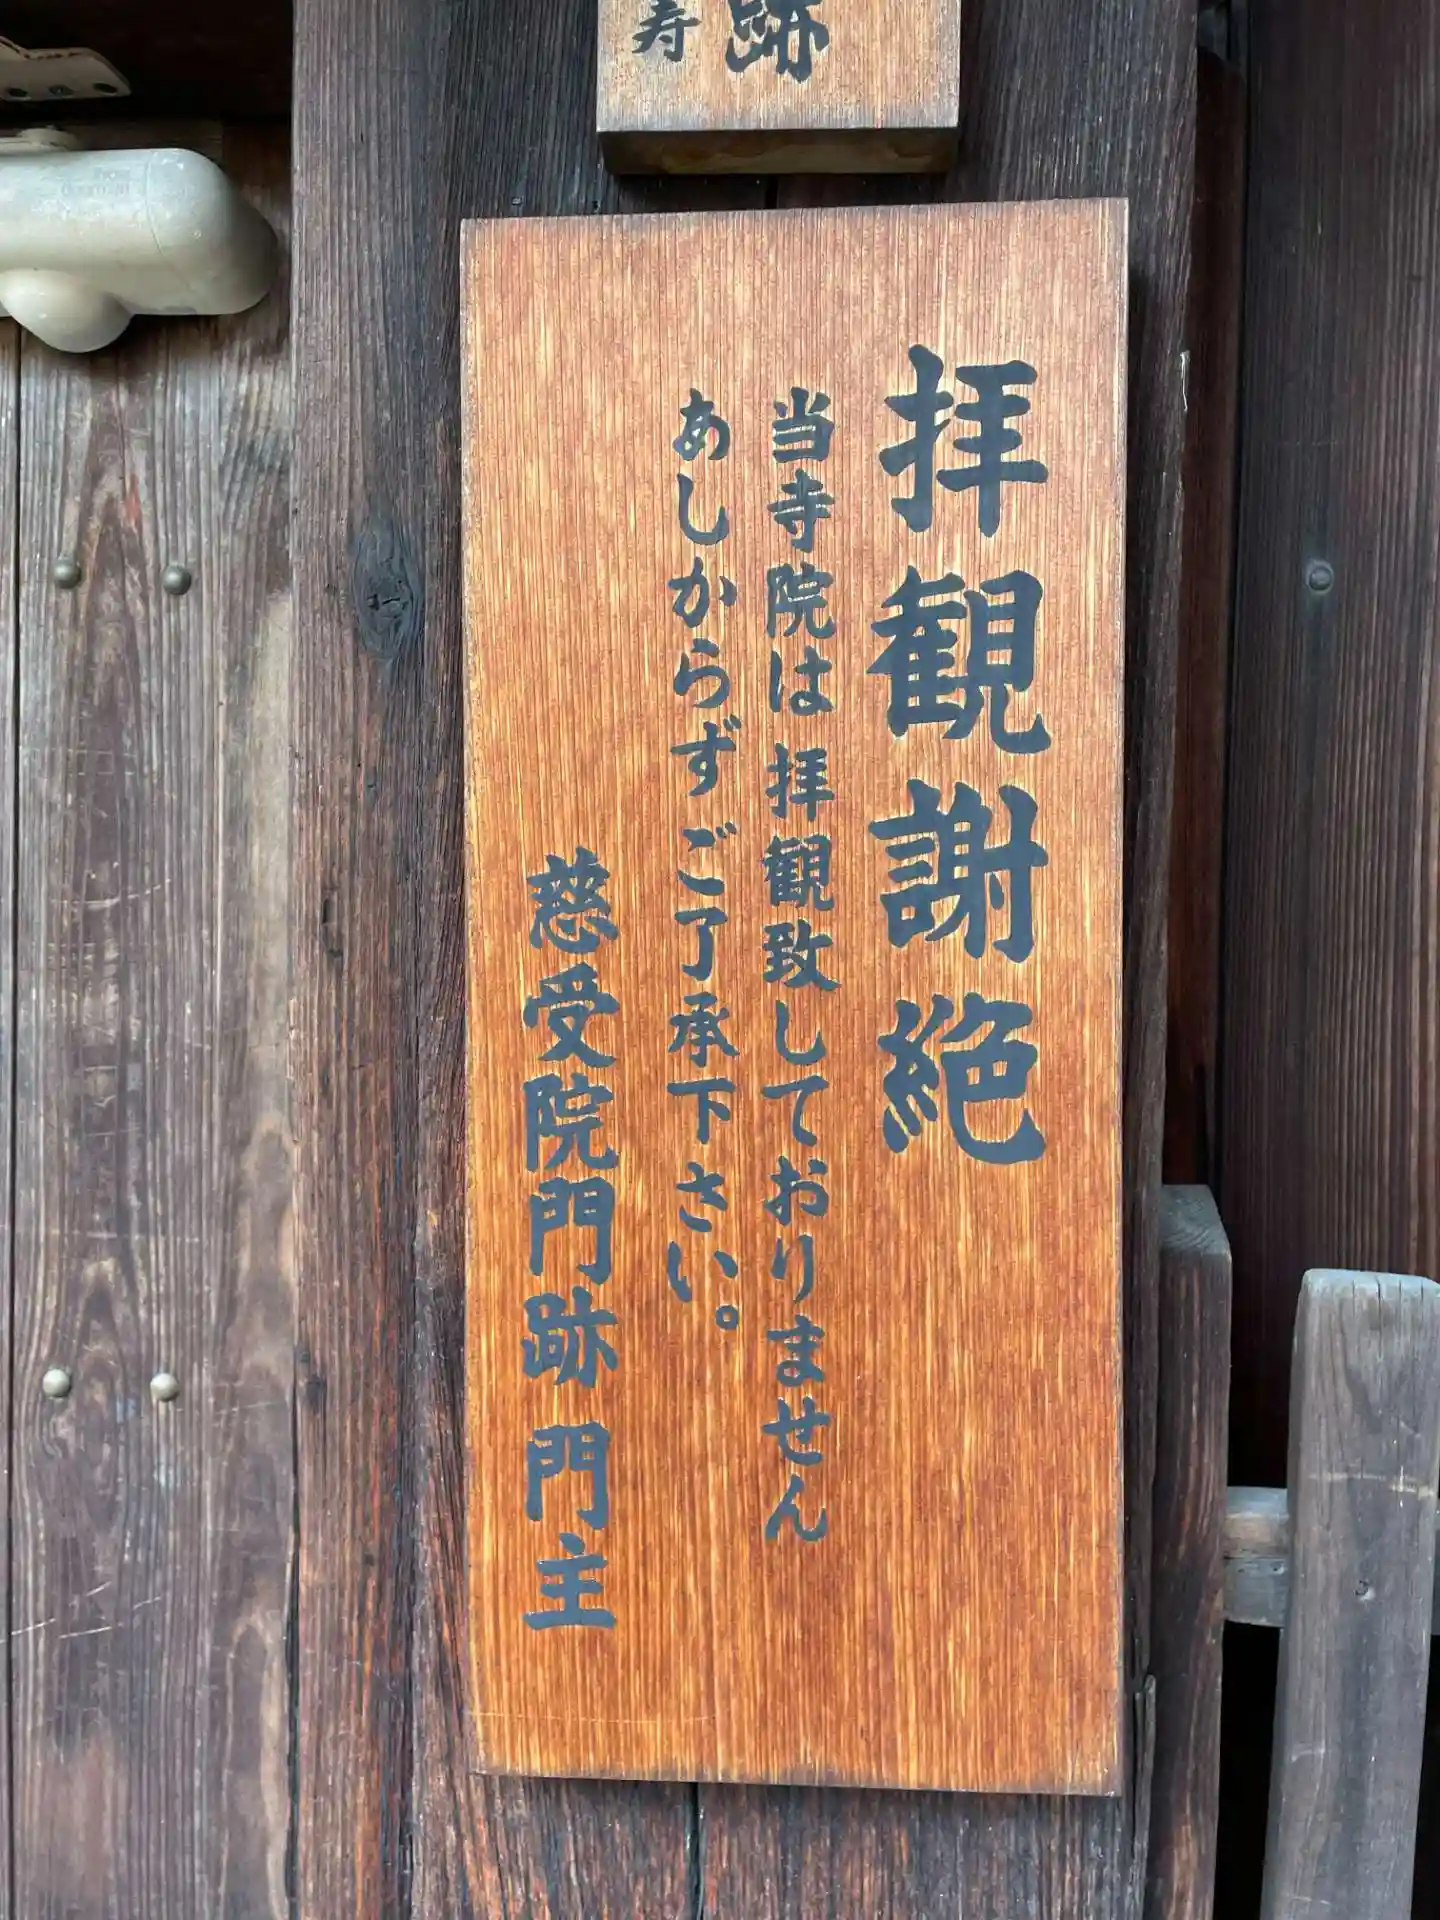 跡
寿
拝観謝絶
当寺院は拝観致しておりません
あしからずご了承下さい。
慈受院門跡 門主